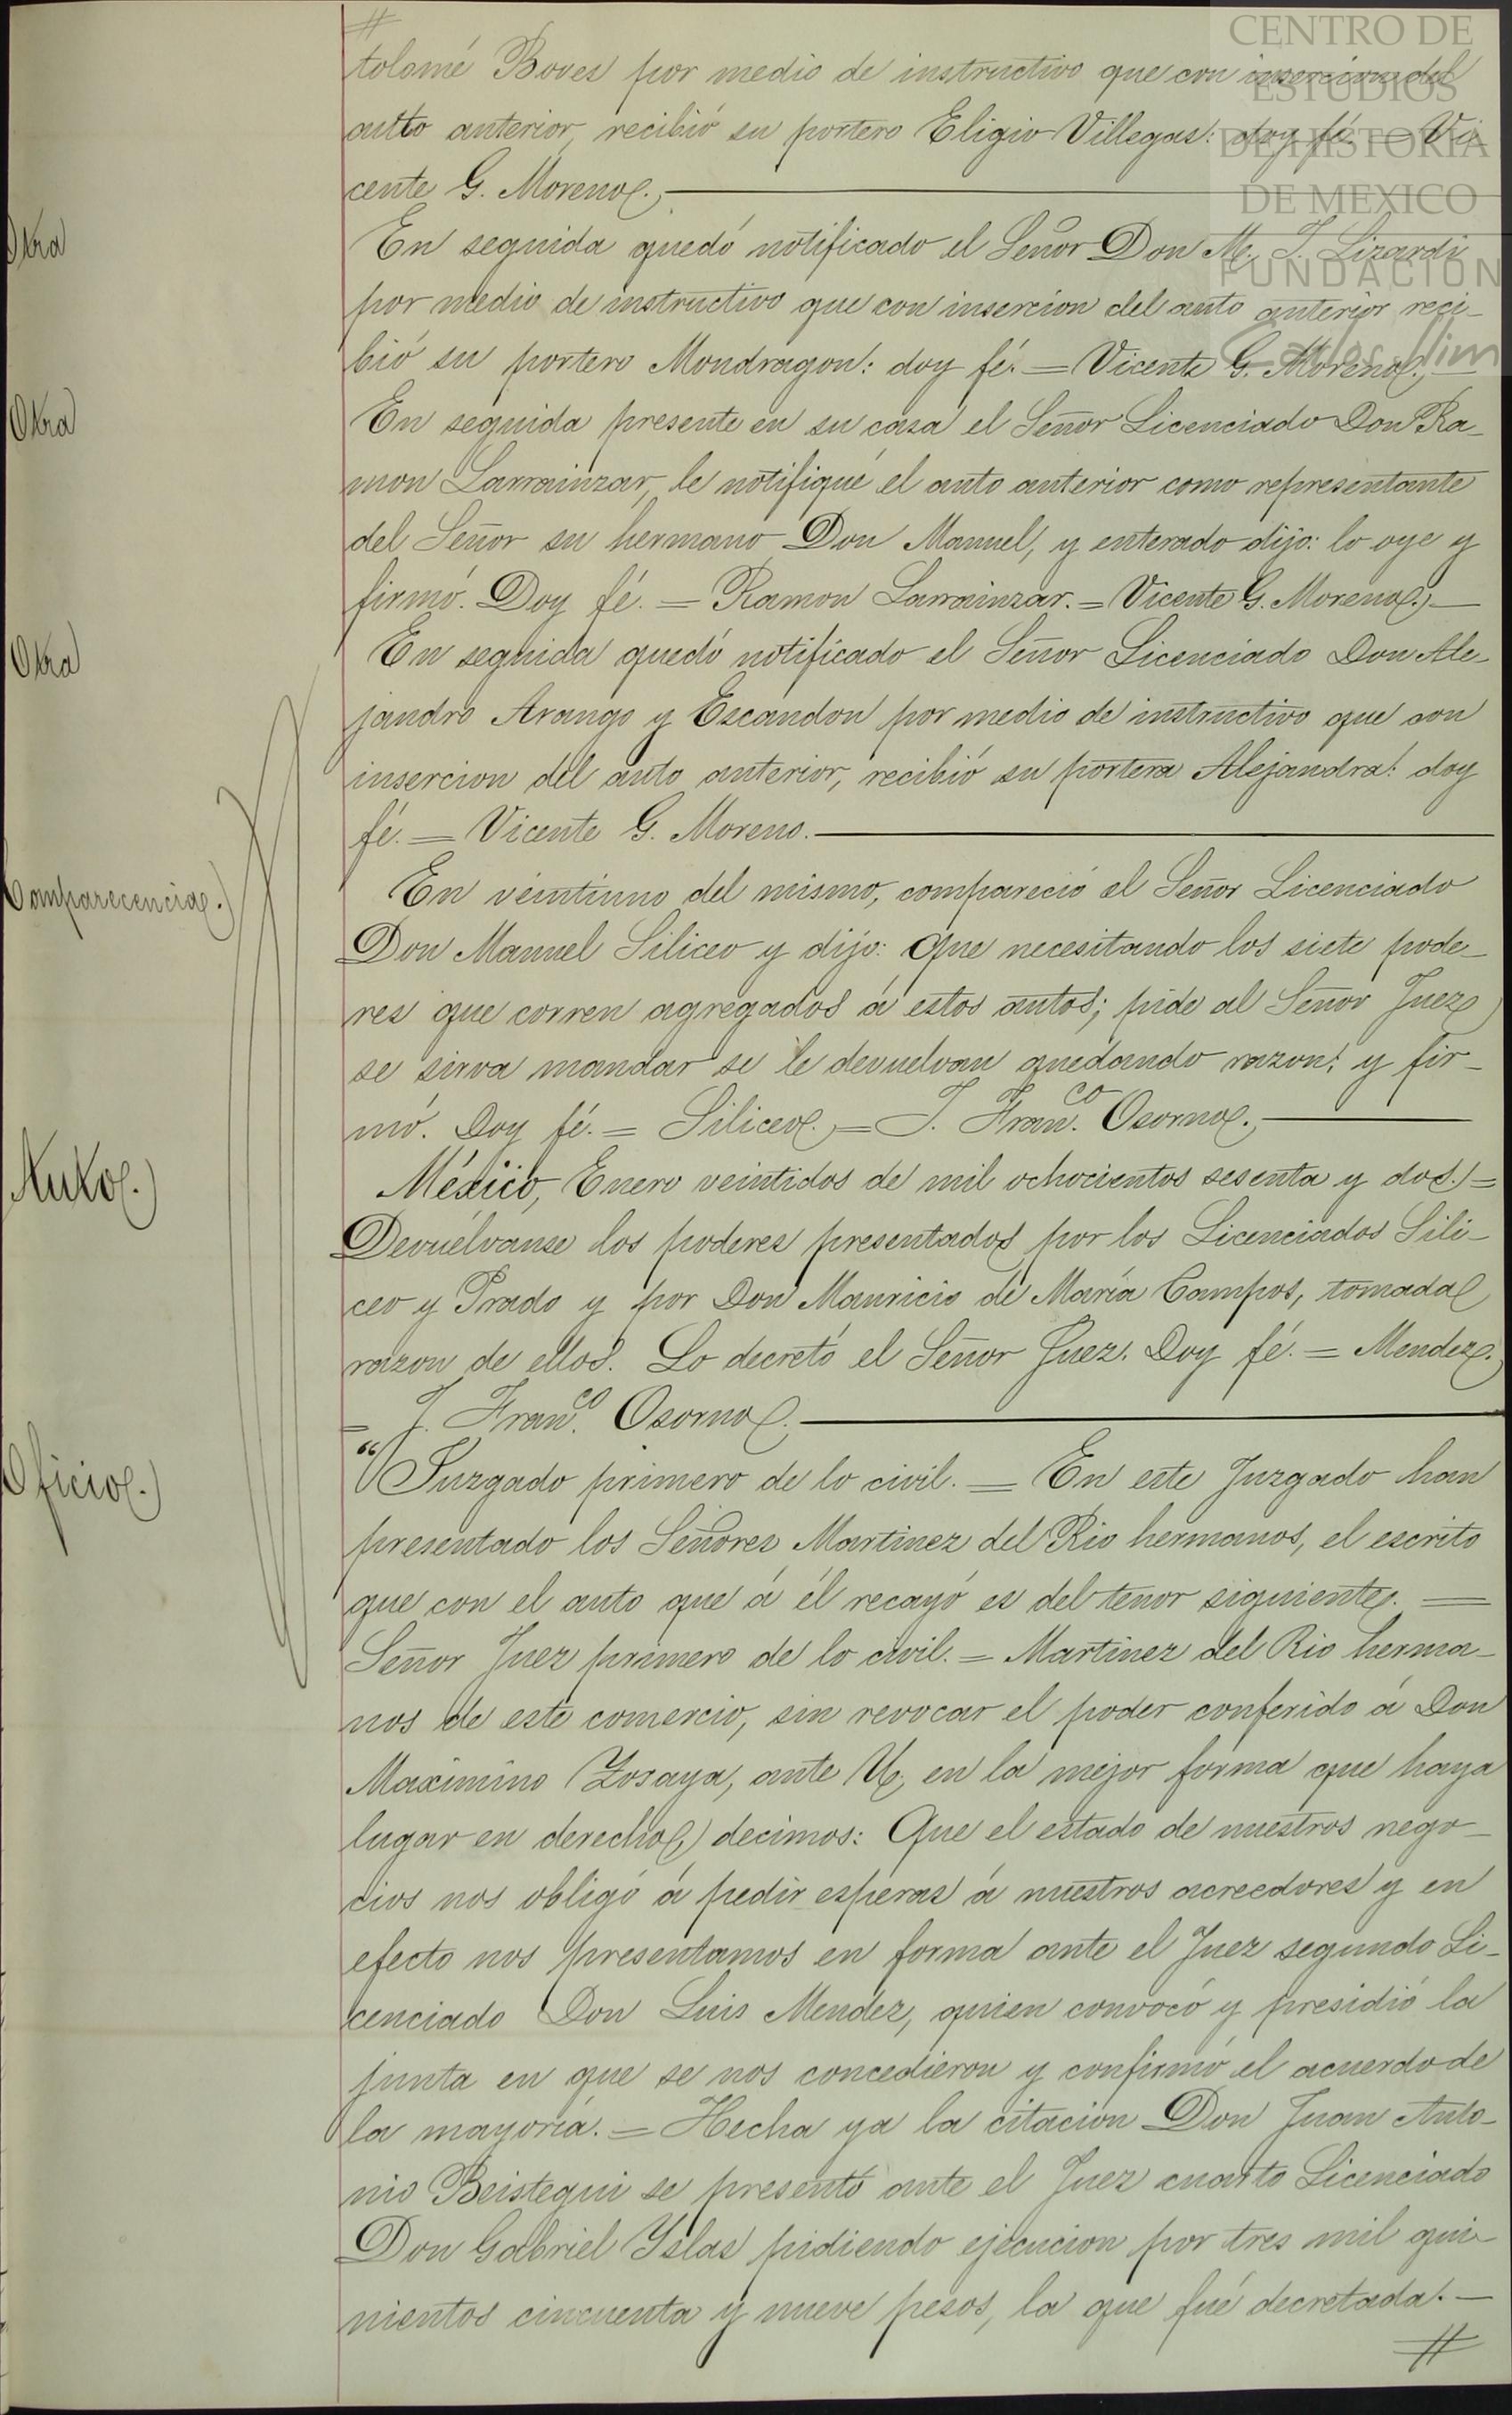 #
tolomé Boves por medio de instructivo que con insercion del
autto anterior, recibió su portero Eligio Villegas: doy fé. = Vi-
cente G. Moreno.
Otra
En seguida quedó notificado el Señor Don M. J. Lizardi
por medio de instructivo que con insercion del auto anterior reci-
bió su portero Mondragon: doy fé. = Vicente G. Moreno.
Otra
En seguida presente en su casa el Señor Licenciado Don Ra-
mon Larrainzar, le notifiqué el auto anterior como representante
del Señor su hermano Don Manuel, y enterado dijo: lo oye y
firmó. Doy fé. = Ramon Larrainzar. = Vicente G. Moreno.
Otra
En seguida quedó notificado el Señor Licenciado Don Ale-
jandro Arango y Escandon por medio de instructivo que con
insercion del auto anterior, recibió su portera Alejandra: doy
fé. = Vicente G. Moreno.
Comparecencia.
En veintiuno del mismo, compareció el Señor Licenciado
Don Manuel Siliceo y dijo: Que necesitando los siete pode-
res que corren agregados á estos autos; pide al Señor Juez
se sirva mandar se le devuelvan quedando razon: y fir-
mó. Doy fé. = Siliceo. = J. Fran.co Osorno.
Auto.
México, Enero veintidos de mil ochocientos sesenta y dos. =
Devuélvanse los poderes presentados por los Licenciados Sili-
ceo y Prado y por Don Mauricio de María Campos, tomada
razon de ellos. Lo decretó el Señor Juez. Doy fé. = Mendez.
= J. Fran.co Osorno.
Oficio.
"Juzgado primero de lo civil. = En este Juzgado han
presentado los Señores Martinez del Rio hermanos, el escrito
que con el auto que á él recayó es del tenor siguiente. =
Señor Juez primero de lo civil. = Martinez del Rio herma-
nos de este comercio, sin revocar el poder conferido á Don
Maximino Zosaya, ante U. en la mejor forma que haya
lugar en derecho, decimos: Que el estado de nuestros nego-
cios nos obligó á pedir esperas á nuestros acreedores y en
efecto nos presentamos en forma ante el Juez segundo Li-
cenciado Don Luis Mendez, quien convocó y presidió la
junta en que se nos concedieron y confirmó el acuerdo de
la mayoría. = Hecha ya la citacion Don Juan Anto-
nio Beistegui se presentó ante el Juez cuarto Licenciado
Don Gabriel Yslas pidiendo ejecucion por tres mil qui-
nientos cincuenta y nueve pesos, la que fué decretada. -
#
CENTRO DE
ESTUDIOS
DE HISTORIA
DE MEXICO
FUNDACIÓN
Carlos Slim